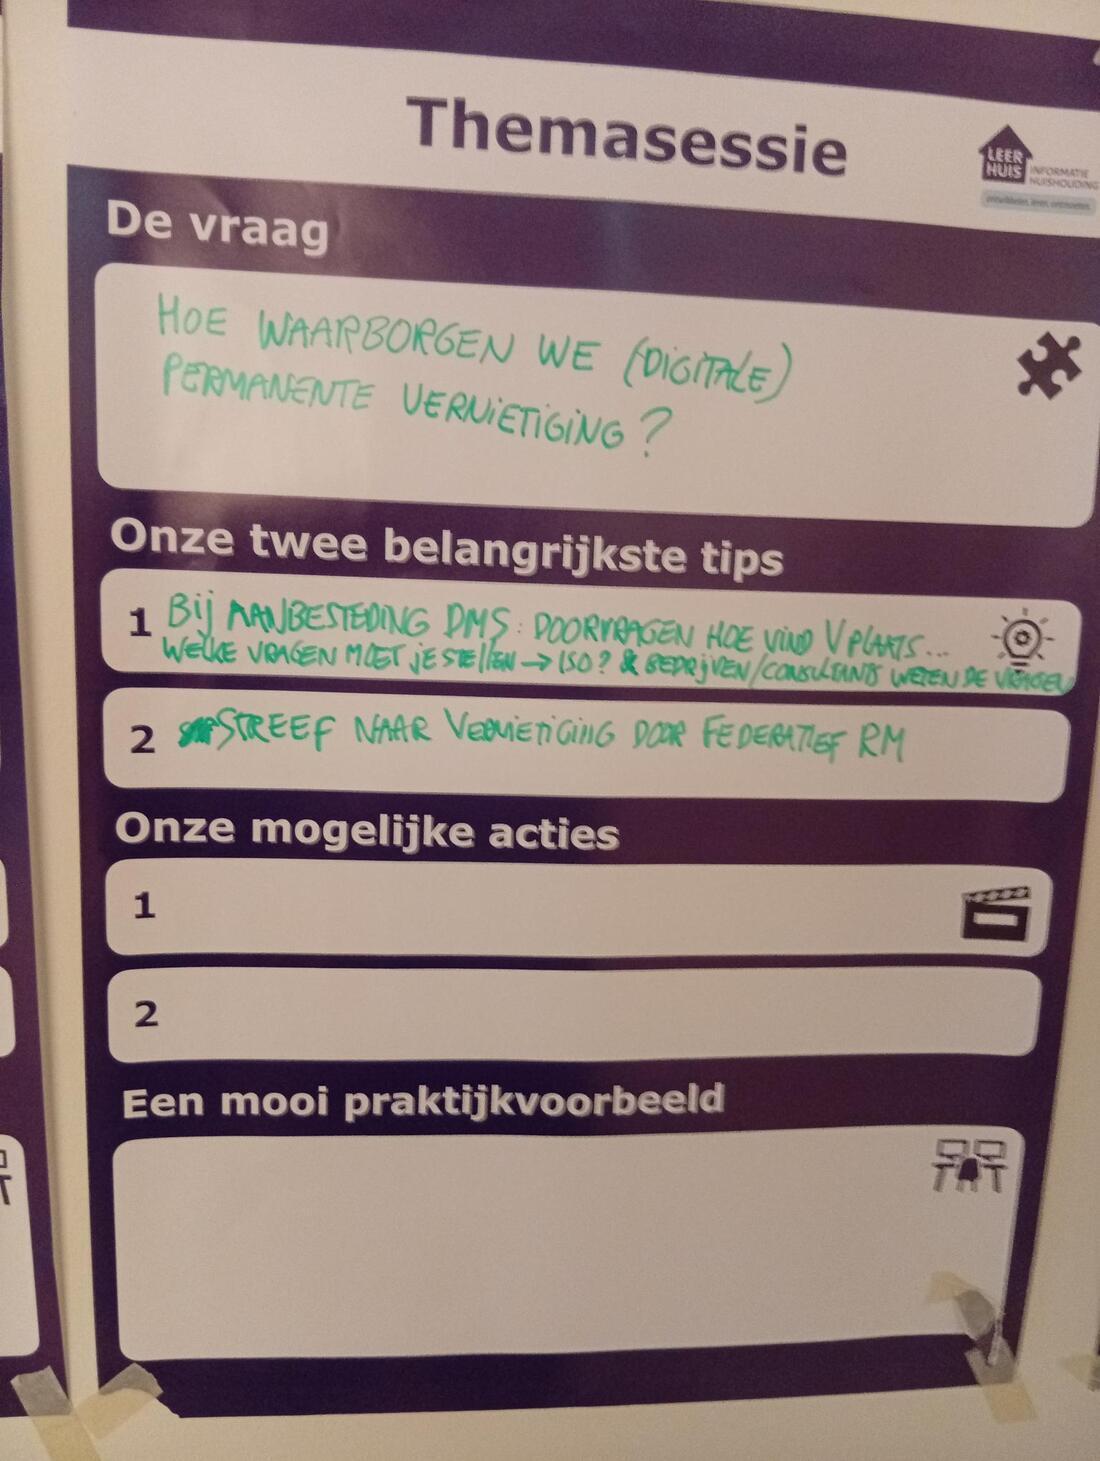 Themasessie
LEER
HUIS
INFORMATIE
HUISHOUDING
ontwikkelen, leren, ontmoeten
De vraag
HOE WAARBORGEN WE (DIGITALE)
PERMANENTE VERNIETIGING?
Onze twee belangrijkste tips
1 Bij AANBESTEDING DMS: DOORVRAGEN HOE VIND V PLAATS...
WELKE VRAGEN MOET JE STELLEN → ISO? & BEDRIJVEN/CONSULTANTS WETEN DE VRAGEN
2 STREEF NAAR VERNIETIGING DOOR FEDERATIEF RM
Onze mogelijke acties
1
2
Een mooi praktijkvoorbeeld